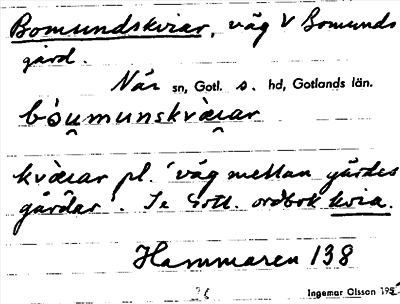 Bomundskviar, väg V Bomunds
gård.
När sn, Gotl. s. hd, Gotlands län.
bóu̯munskvàiar
kvàiar pl. 'väg mellan gärdes
gårdar'. Se Gotl. ordbok kvia.
Hammaren 138
Ingemar Olsson